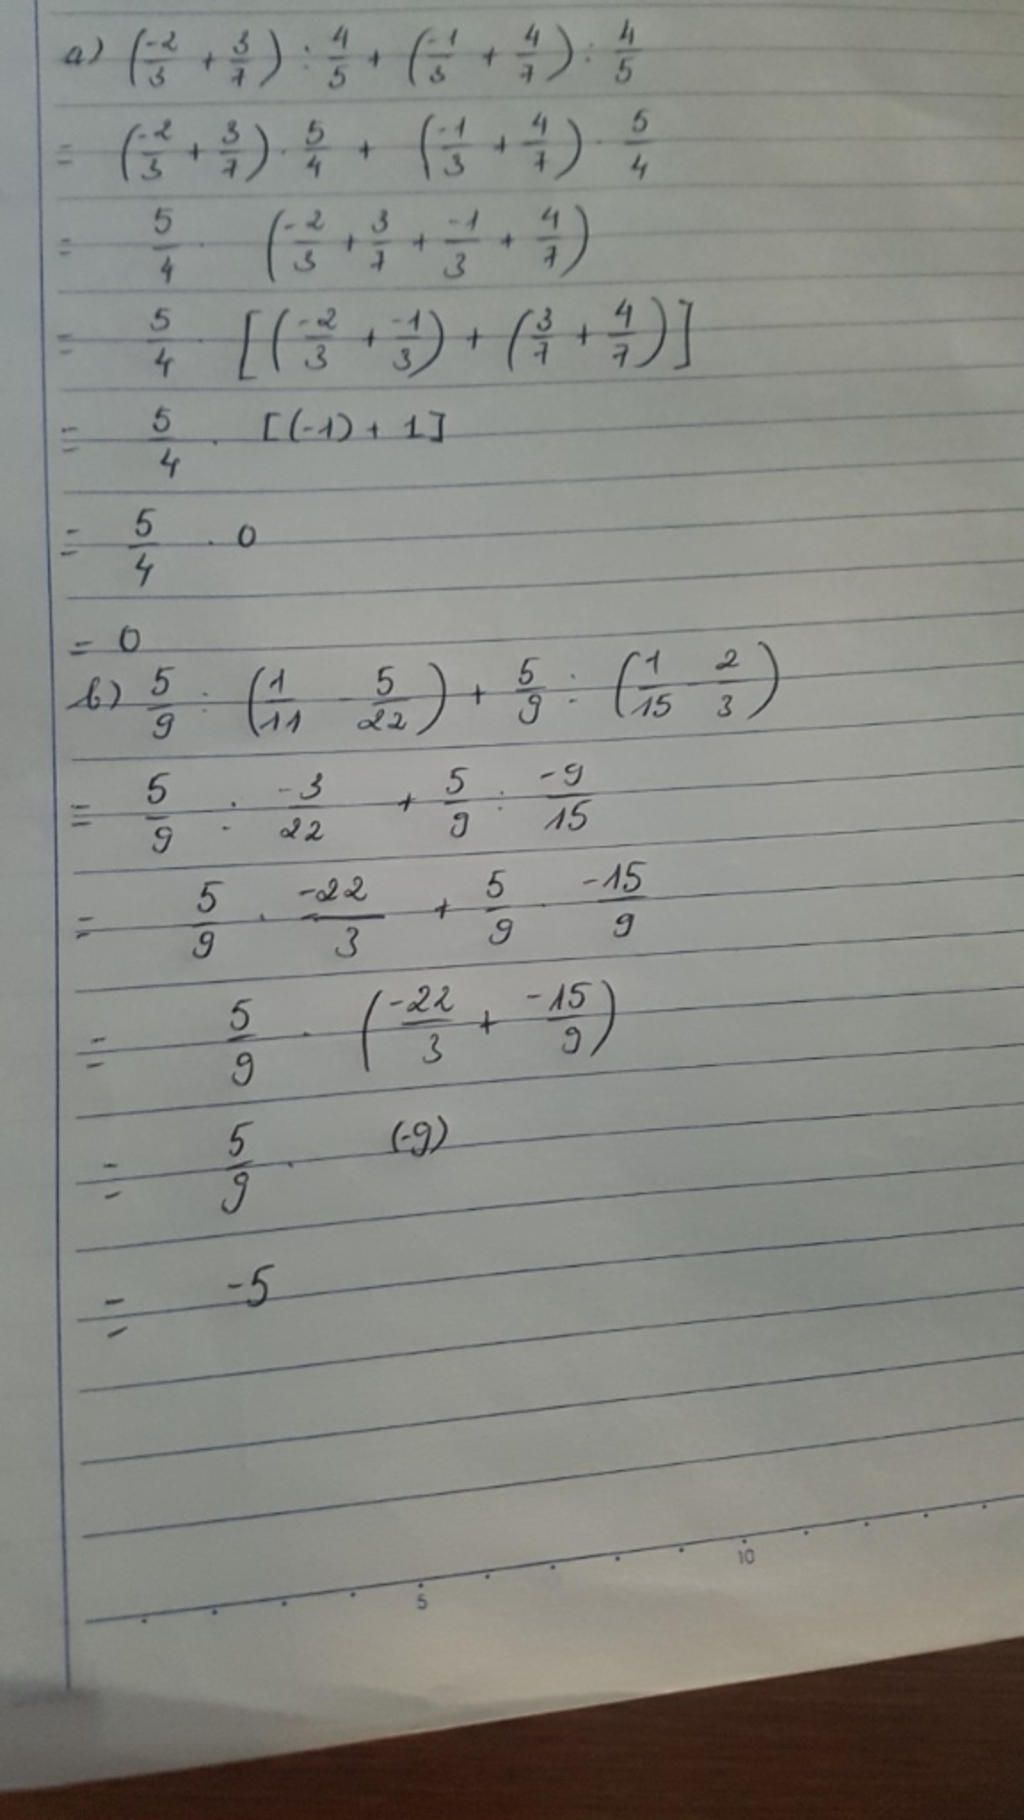 a) (-2/3 + 3/7) : 4/5 + (-1/3 + 4/7) : 4/5
= (-2/3 + 3/7) . 5/4 + (-1/3 + 4/7) . 5/4
= 5/4 . (-2/3 + 3/7 + -1/3 + 4/7)
= 5/4 . [(-2/3 + -1/3) + (3/7 + 4/7)]
= 5/4 . [(-1) + 1]
= 5/4 . 0
= 0
b) 5/9 : (1/11 - 5/22) + 5/9 : (1/15 - 2/3)
= 5/9 : -3/22 + 5/9 : -9/15
= 5/9 . -22/3 + 5/9 . -15/9
= 5/9 . (-22/3 + -15/9)
= 5/9 . (-9)
= -5
5 10